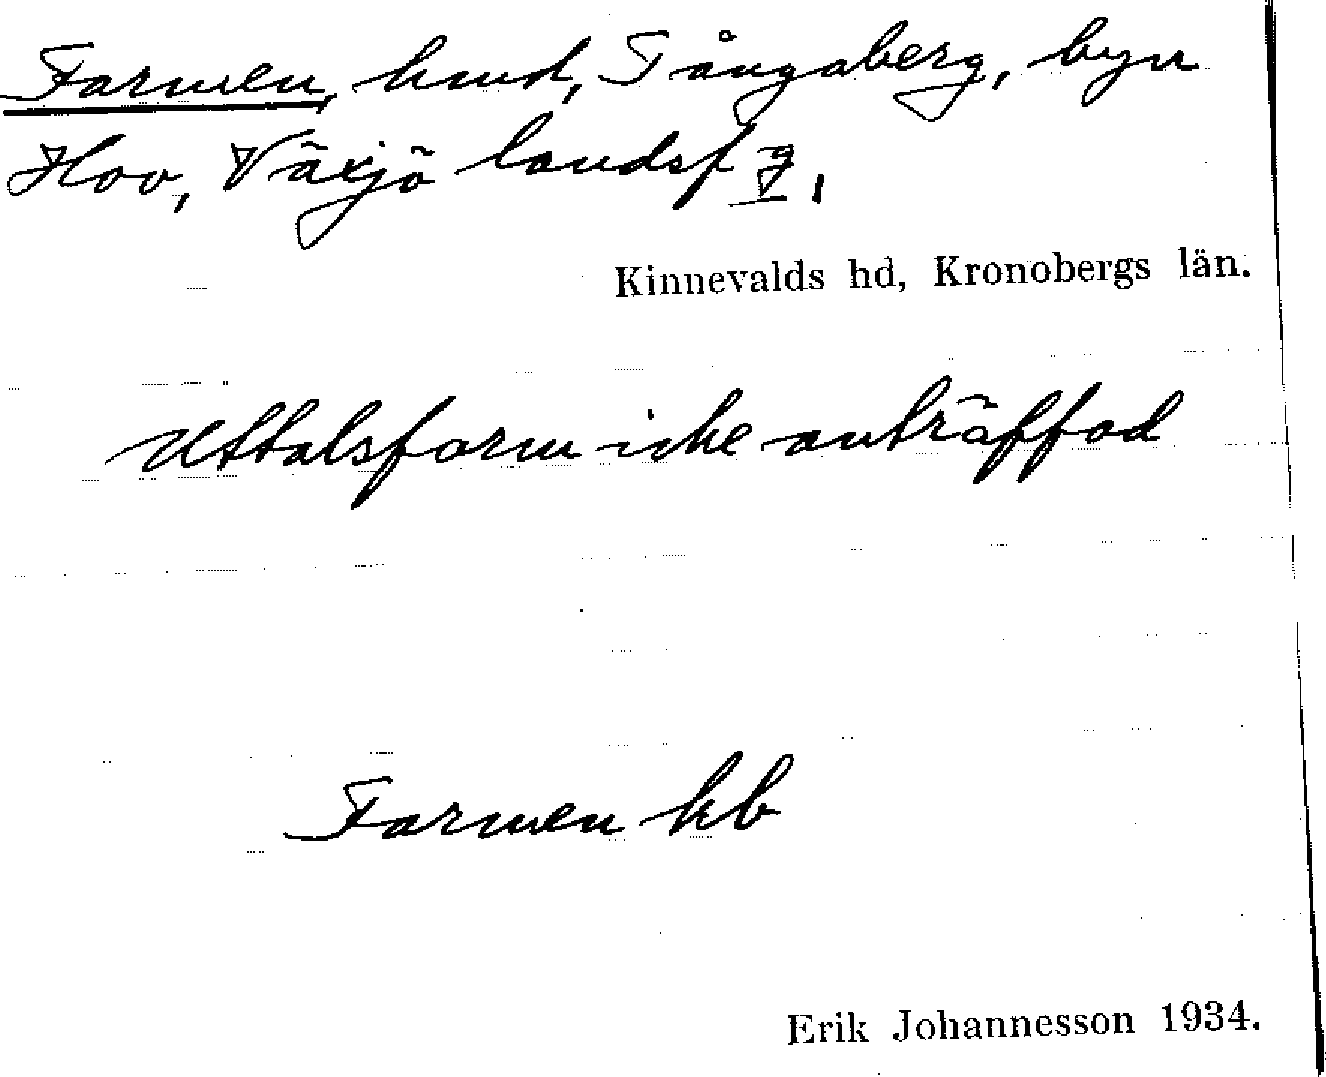 Farmen, hmd, Tångaberg, byn
Hov, Växjö landsf g,
Kinnevalds hd, Kronobergs län.
Uttalsform icke anträffad
Farmen hb
Erik Johannesson 1934.